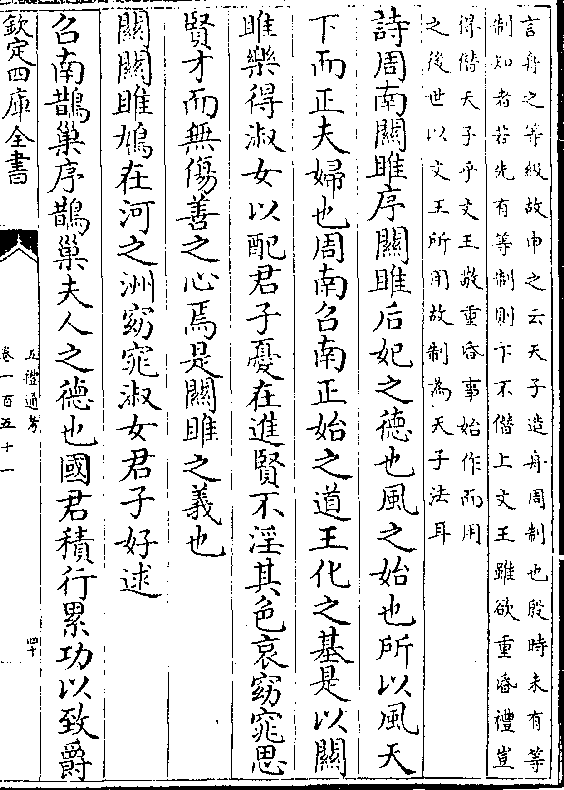 言舟之等級故申之云天子造舟周制也殷時未有等
制知者若先有等制則下不僭上文王雖欲重昏禮豈
得僭天子乎文王敬重昏事始作而用
之後世以文王所用故制為天子法耳
詩周南關雎序關雎后妃之德也風之始也所以風天
下而正夫婦也周南召南正始之道王化之基是以關
雎樂得淑女以配君子憂在進賢不淫其色哀窈窕思
賢才而無傷善之心焉是關雎之義也
關關雎鳩在河之洲窈窕淑女君子好逑
召南鵲巢序鵲巢夫人之德也國君積行累功以致爵
欽定四庫全書
五禮通考
卷一百五十一
四十